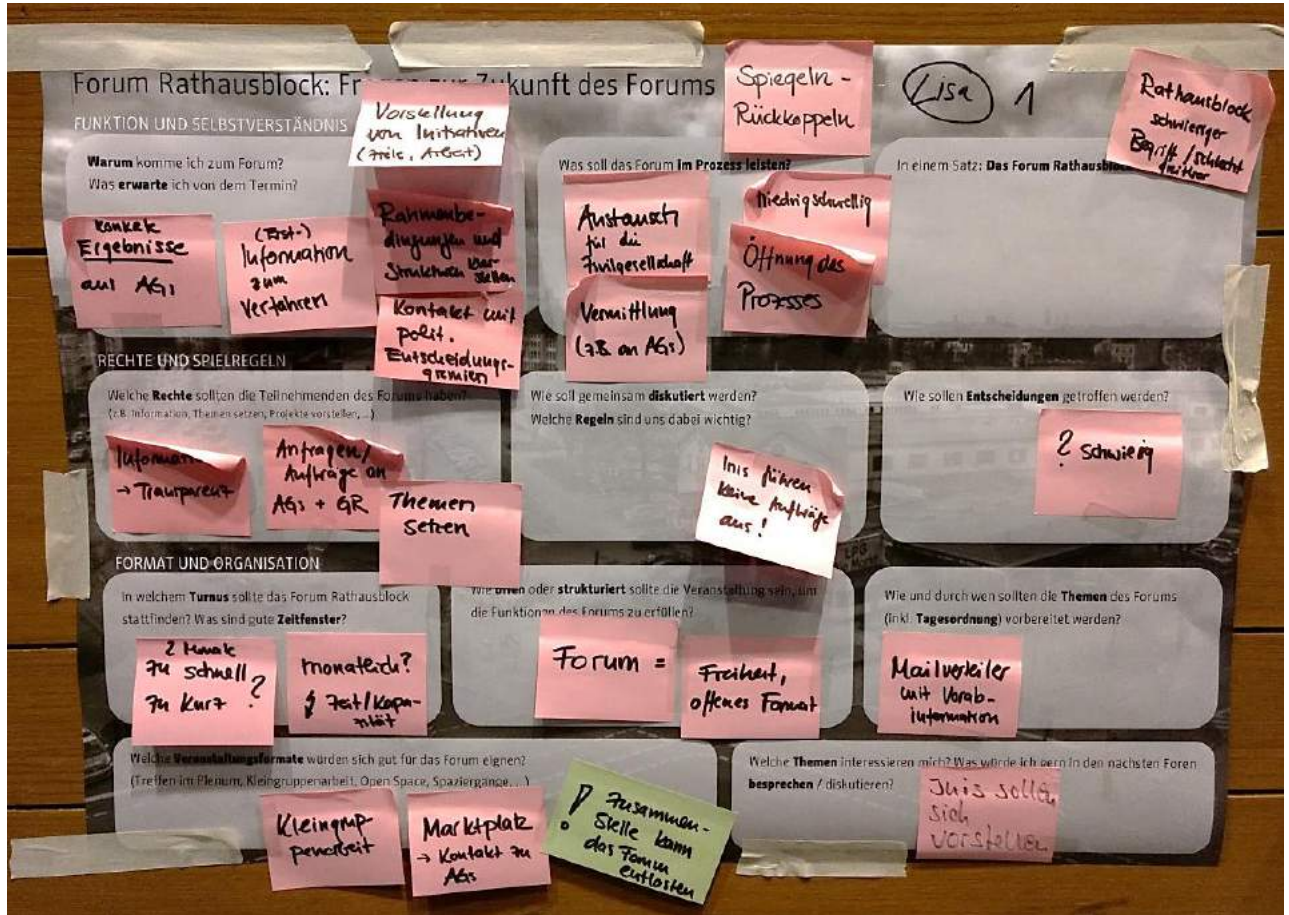 Forum Rathausblock: Fr zur Zukunft des Forums
Spiegeln -
Rückkoppeln
Lisa 1
Rathausblock
schwieriger
Begriff / schlecht
FUNKTION UND SELBSTVERSTÄNDNIS
Vorstellung
von Initiativen
(Ziele, Arbeit)
Warum komme ich zum Forum?
Was erwarte ich von dem Termin?
konkrete
Ergebnisse
aus AGs
(Erst-)
Information
zum
Verfahren
Rahmenbe-
dingungen und
Strukturen klar-
stellen
Kontakt mit
polit.
Entscheidungs-
gremien
Was soll das Forum im Prozess leisten?
Austausch
für die
Zivilgesellschaft
Vermittlung
(z.B. an AGs)
Niedrigschwellig
Öffnung des
Prozesses
In einem Satz: Das Forum Rathausblock
RECHTE UND SPIELREGELN
Welche Rechte sollten die Teilnehmenden des Forums haben?
(z.B. Information, Themen setzen, Projekte vorstellen, ...)
Information
→ Transparenz
Anfragen/
Aufträge an
AGs + GR
Themen
setzen
Wie soll gemeinsam diskutiert werden?
Welche Regeln sind uns dabei wichtig?
Inis führen
keine Aufträge
aus!
Wie sollen Entscheidungen getroffen werden?
? schwierig
LPG
FORMAT UND ORGANISATION
In welchem Turnus sollte das Forum Rathausblock
stattfinden? Was sind gute Zeitfenster?
2 Monate
zu schnell
zu kurz ?
monatlich?
Zeit/Kapa-
zität
Wie offen oder strukturiert sollte die Veranstaltung sein, um
die Funktionen des Forums zu erfüllen?
Forum =
Freiheit,
offenes Format
Wie und durch wen sollten die Themen des Forums
(inkl. Tagesordnung) vorbereitet werden?
Mailverteiler
mit Vorab-
information
Welche Veranstaltungsformate würden sich gut für das Forum eignen?
(Treffen im Plenum, Kleingruppenarbeit, Open Space, Spaziergänge, ...)
Kleingrup-
penarbeit
Marktplatz
→ Kontakt zu
AGs
! Zusammen-
Stelle kann
das Forum
entlasten
Welche Themen interessieren mich? Was würde ich gern in den nächsten Foren
besprechen / diskutieren?
Inis sollen
sich
vorstellen